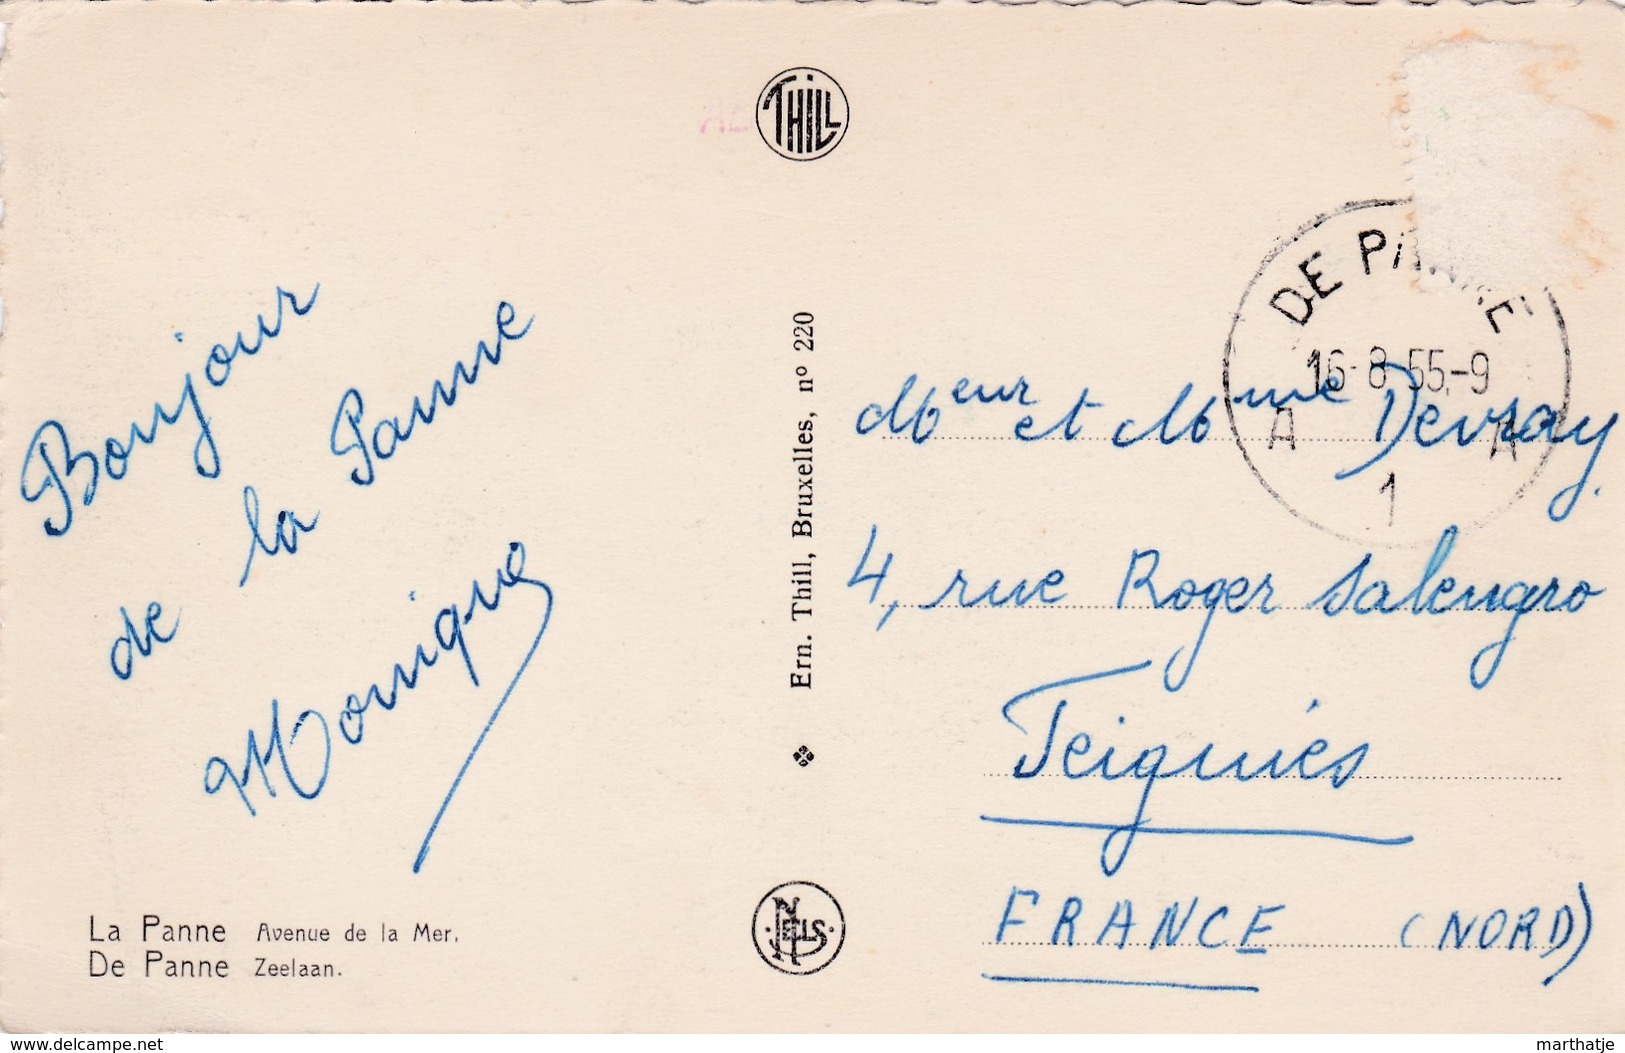 Bonjour
de la Panne
Monique
La Panne Avenue de la Mer.
De Panne Zeelaan.
THILL
Ern. Thill, Bruxelles, nº 220
NELS
DE PANNE
16-8-55-9
A A
1
Meur et Mme Devray
4, rue Roger Salengro
Feignies
FRANCE (NORD)
www.delcampe.net
marthatje